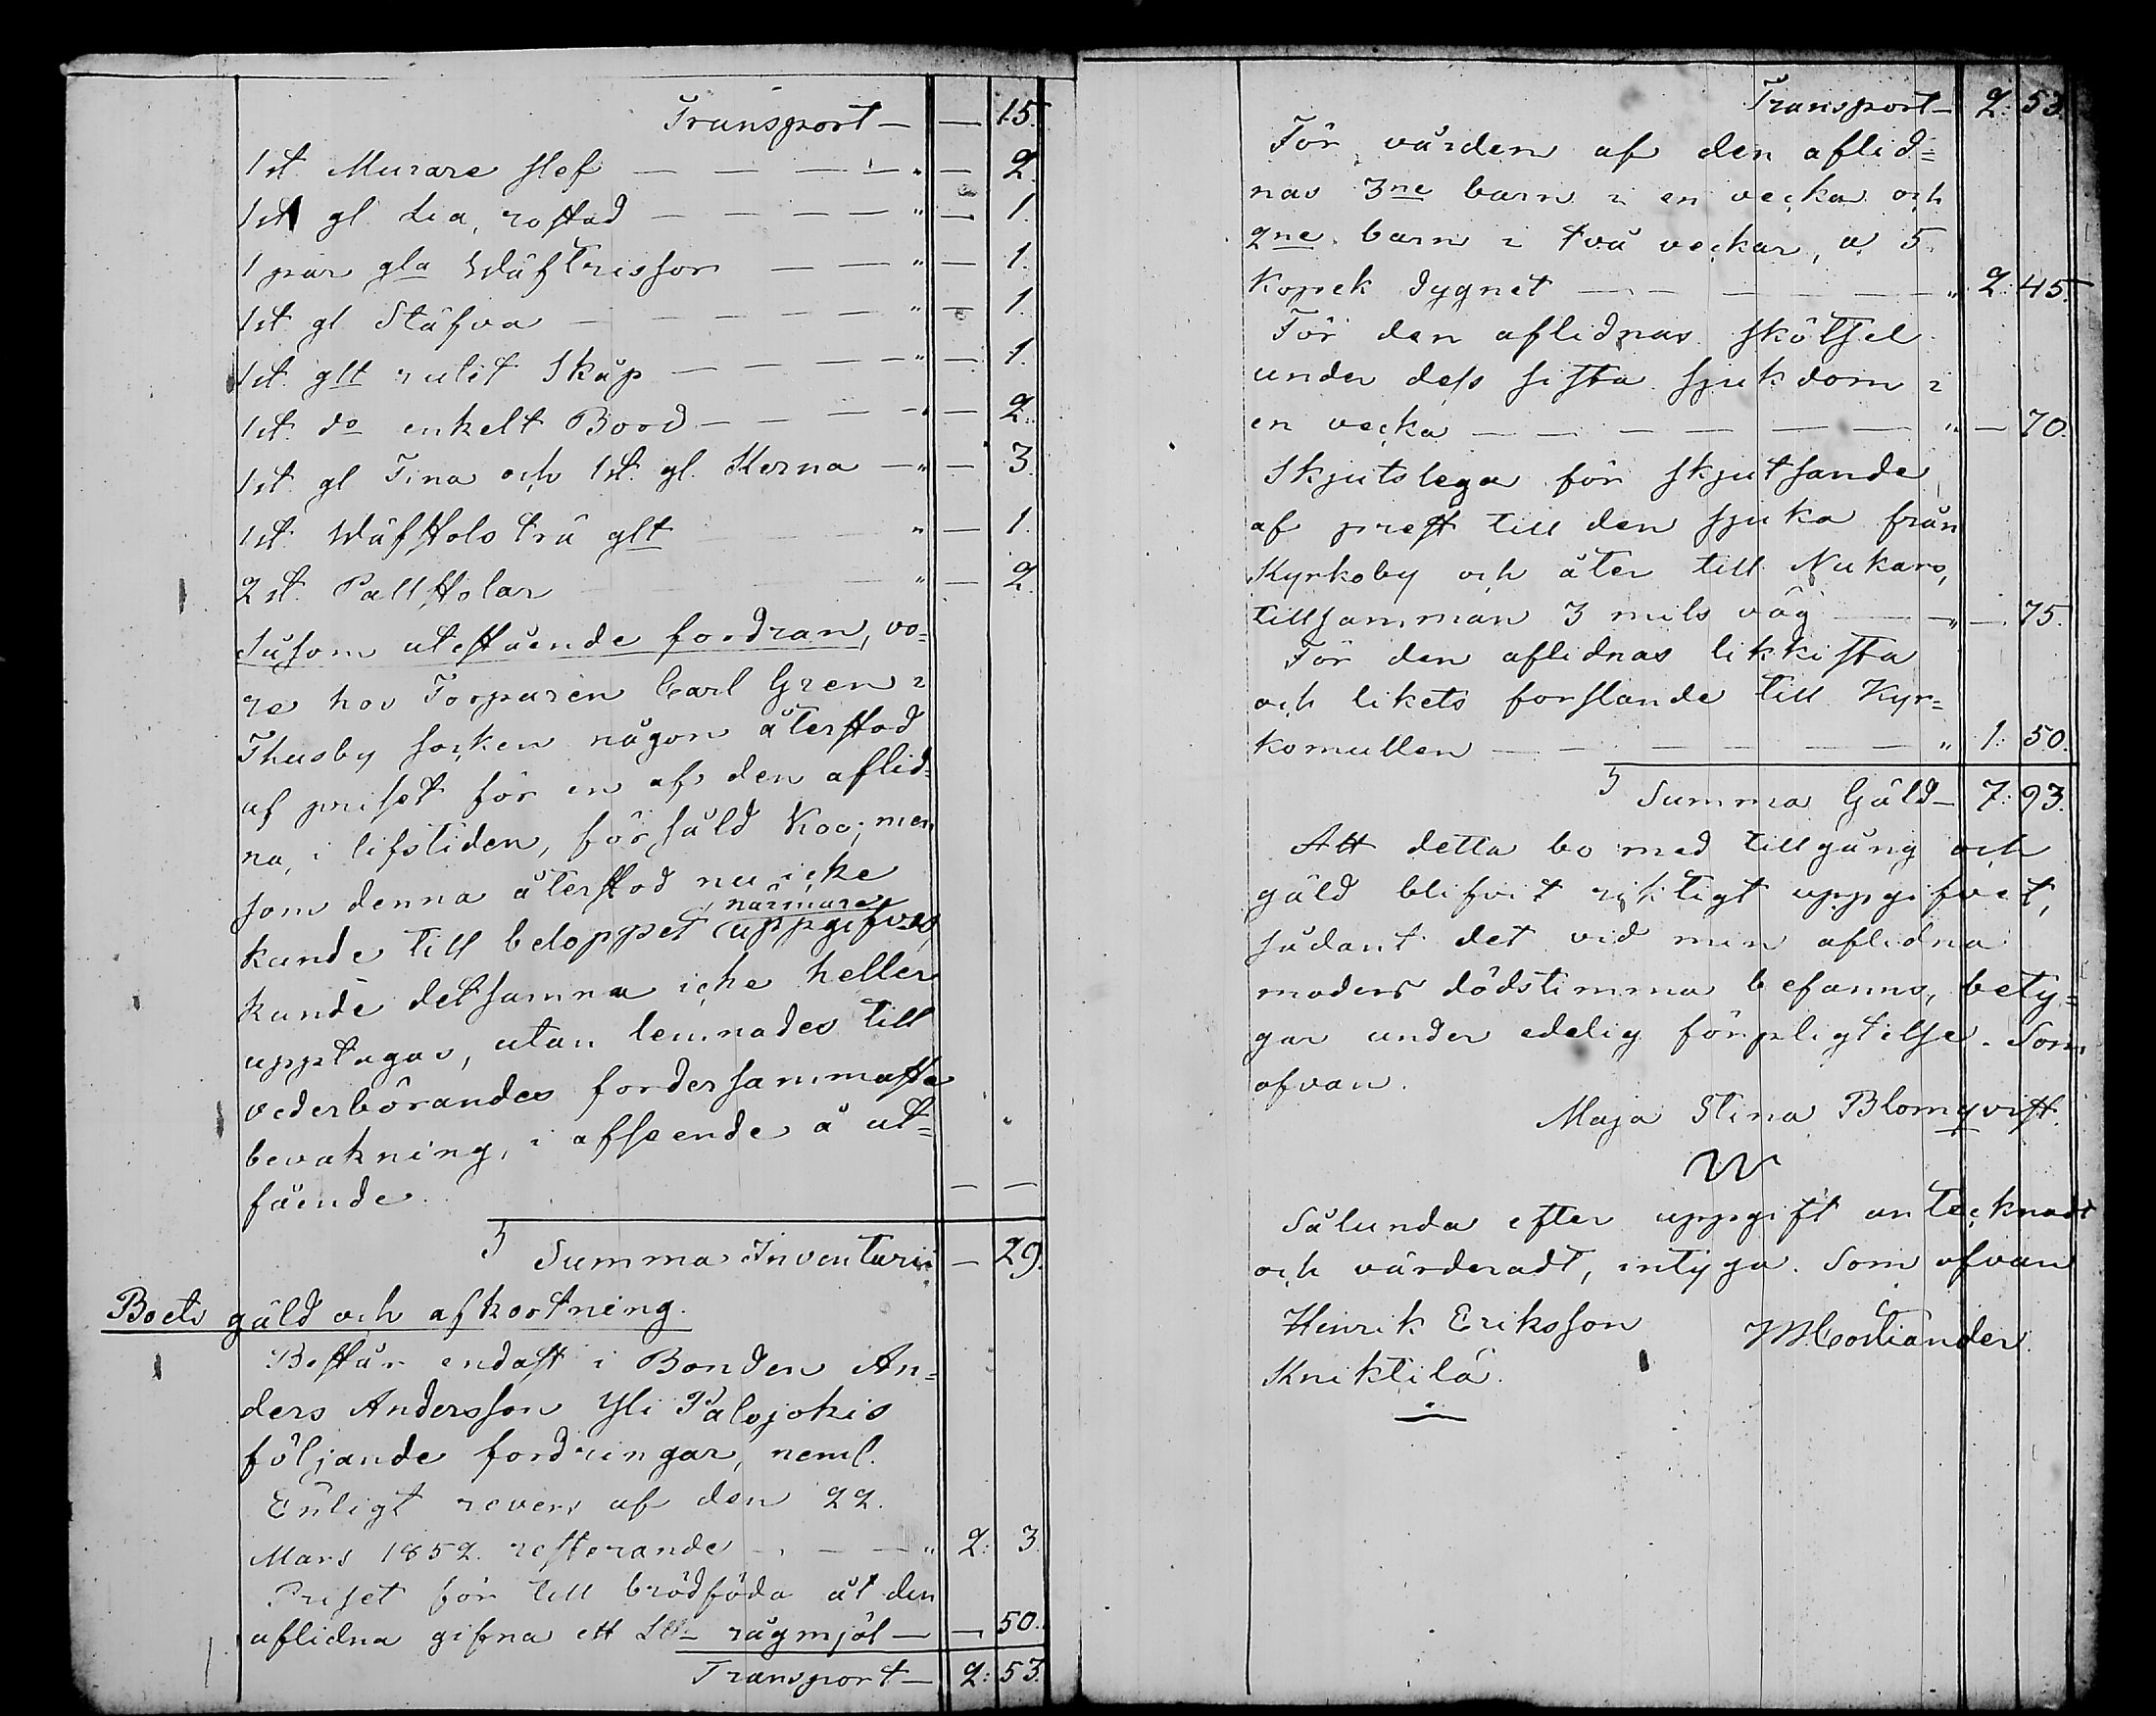 Transport — — 15.
1 st. Murare slef — — — — " — 2.
1 st gl. Lia, rostad — — — — " — 1.
1 par gla Wäftrissor — — " — 1.
1 st. gl Stäfva — — — — — " — 1.
1 st. glt rulit Skåp — — — — " — 1.
1 st. do enkelt Bord — — — — " — 2.
1 st. gl Tina och 1 st. gl. Kerna — " — 3.
1 st. Wäfstols trä glt " — 1.
2 st. Pallstolar " — 2.
Såsom utestående fordran, vo=
re hos Torparen Carl Gren i
Thusby socken någon återstod
af priset för en af den aflid=
na, i lifstiden, försåld Koo; men
som denna återstod nu icke
kunde till beloppet närmare uppgifvas,
kunde detsamma icke heller
upptagas, utan lemnades till
vederbörandes fordersammaste
bevakning, i afseende å ut=
fående. — —
Summa Inventarii — 29.
Boets gäld och afkortning.
Består endast i Bonden An=
ders Andersson Yli Palojokis
följande fordringar, neml.
Enligt revers af den 22.
Mars 1852. resterande — — — " 2: 3.
Priset för till brödföda åt den
aflidna gifna ett L℔ rågmjöl — — 50.
Transport — 2: 53.
Transport — 2: 53.
För vården af den aflid=
nas 3ne barn i en vecka och
2ne barn i två veckar, a 5.
Kopek dygnet — — — — — — " 2: 45.
För den aflidnas skötsel
under dess sista sjukdom i
en vecka — — — — — — — " — 70.
Skjutslega för skjutsande
af prest till den sjuka från
Kyrkoby och åter till Nukars,
tillsamman 3 mils väg — — " — 75.
För den aflidnas likkista
och likets forslande till Kyr=
komullen — — — — — — — " 1: 50.
Summa Gäld — 7: 93.
Att detta bo med tillgång och
gäld blifvit riktigt uppgifvet,
sådant det vid min aflidna
moders dödstimma befanns, bety=
gar under edelig förpligtelse. Som
ofvan.
Maja Stina Blomqvist.
Sålunda efter uppgift antecknadt
och värderadt, intyga. Som ofvan
Henrik Eriksson
Kniktilä.